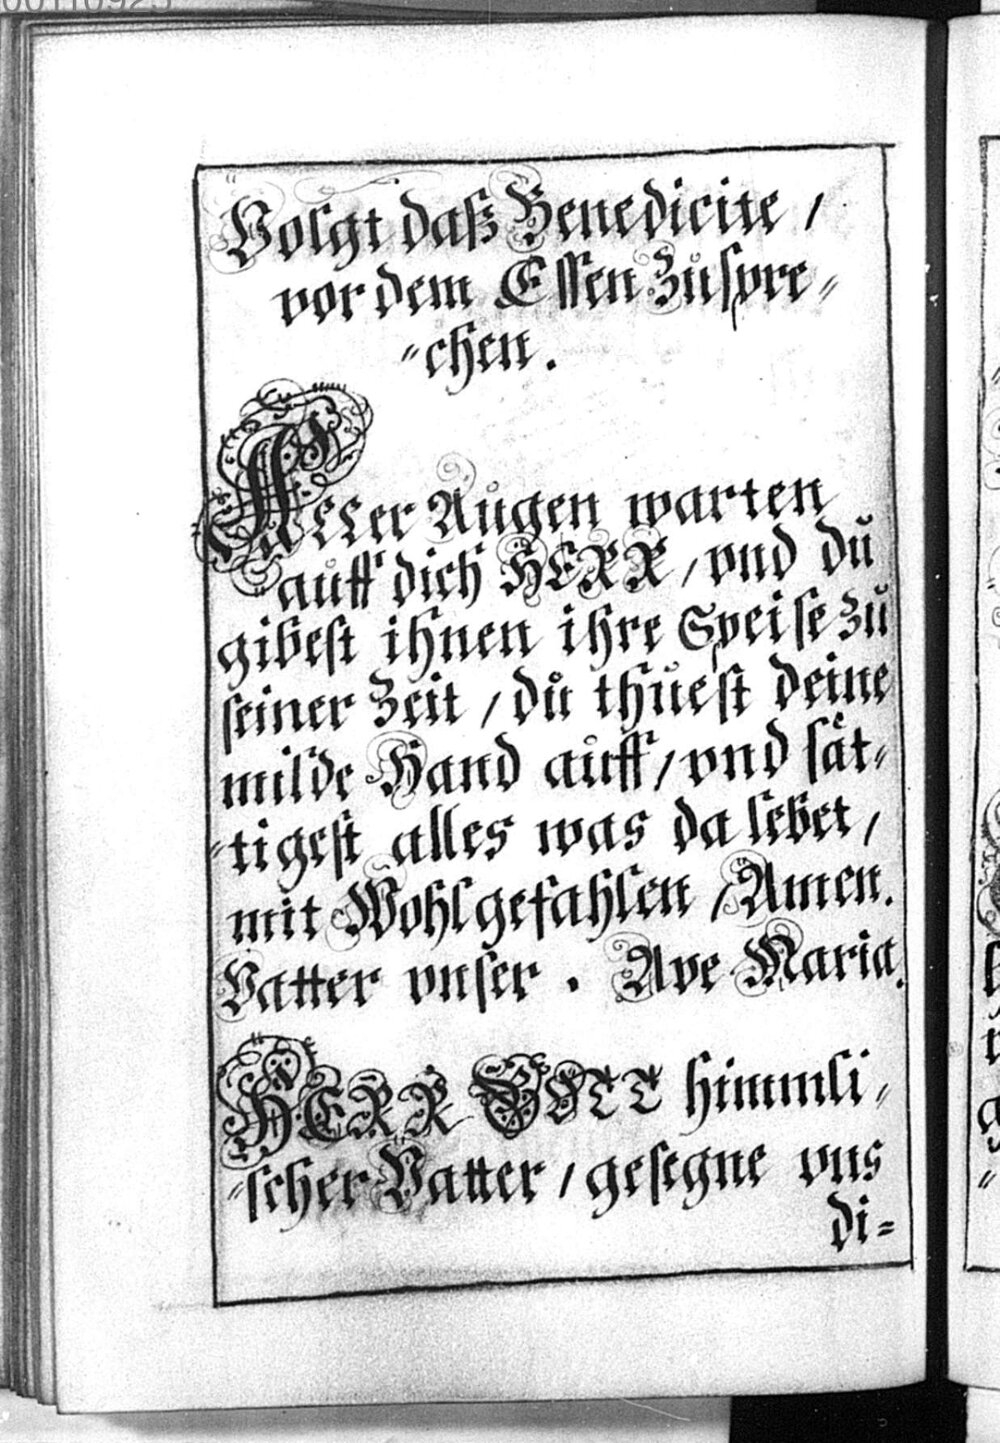 Volgt daß Benedicite /
vor dem Essen zu spre=
=chen.
Aller Augen warten
auff dich HERR / vnd du
gibest ihnen ihre Speise zu
seiner Zeit / du thuest deine
milde Hand auff / vnd sät=
=tigest alles was da lebet /
mit Wohlgefahlen / Amen.
Vatter vnser. Ave Maria.
HERR GOTT himmli=
=scher Vatter / gesegne vns
di=